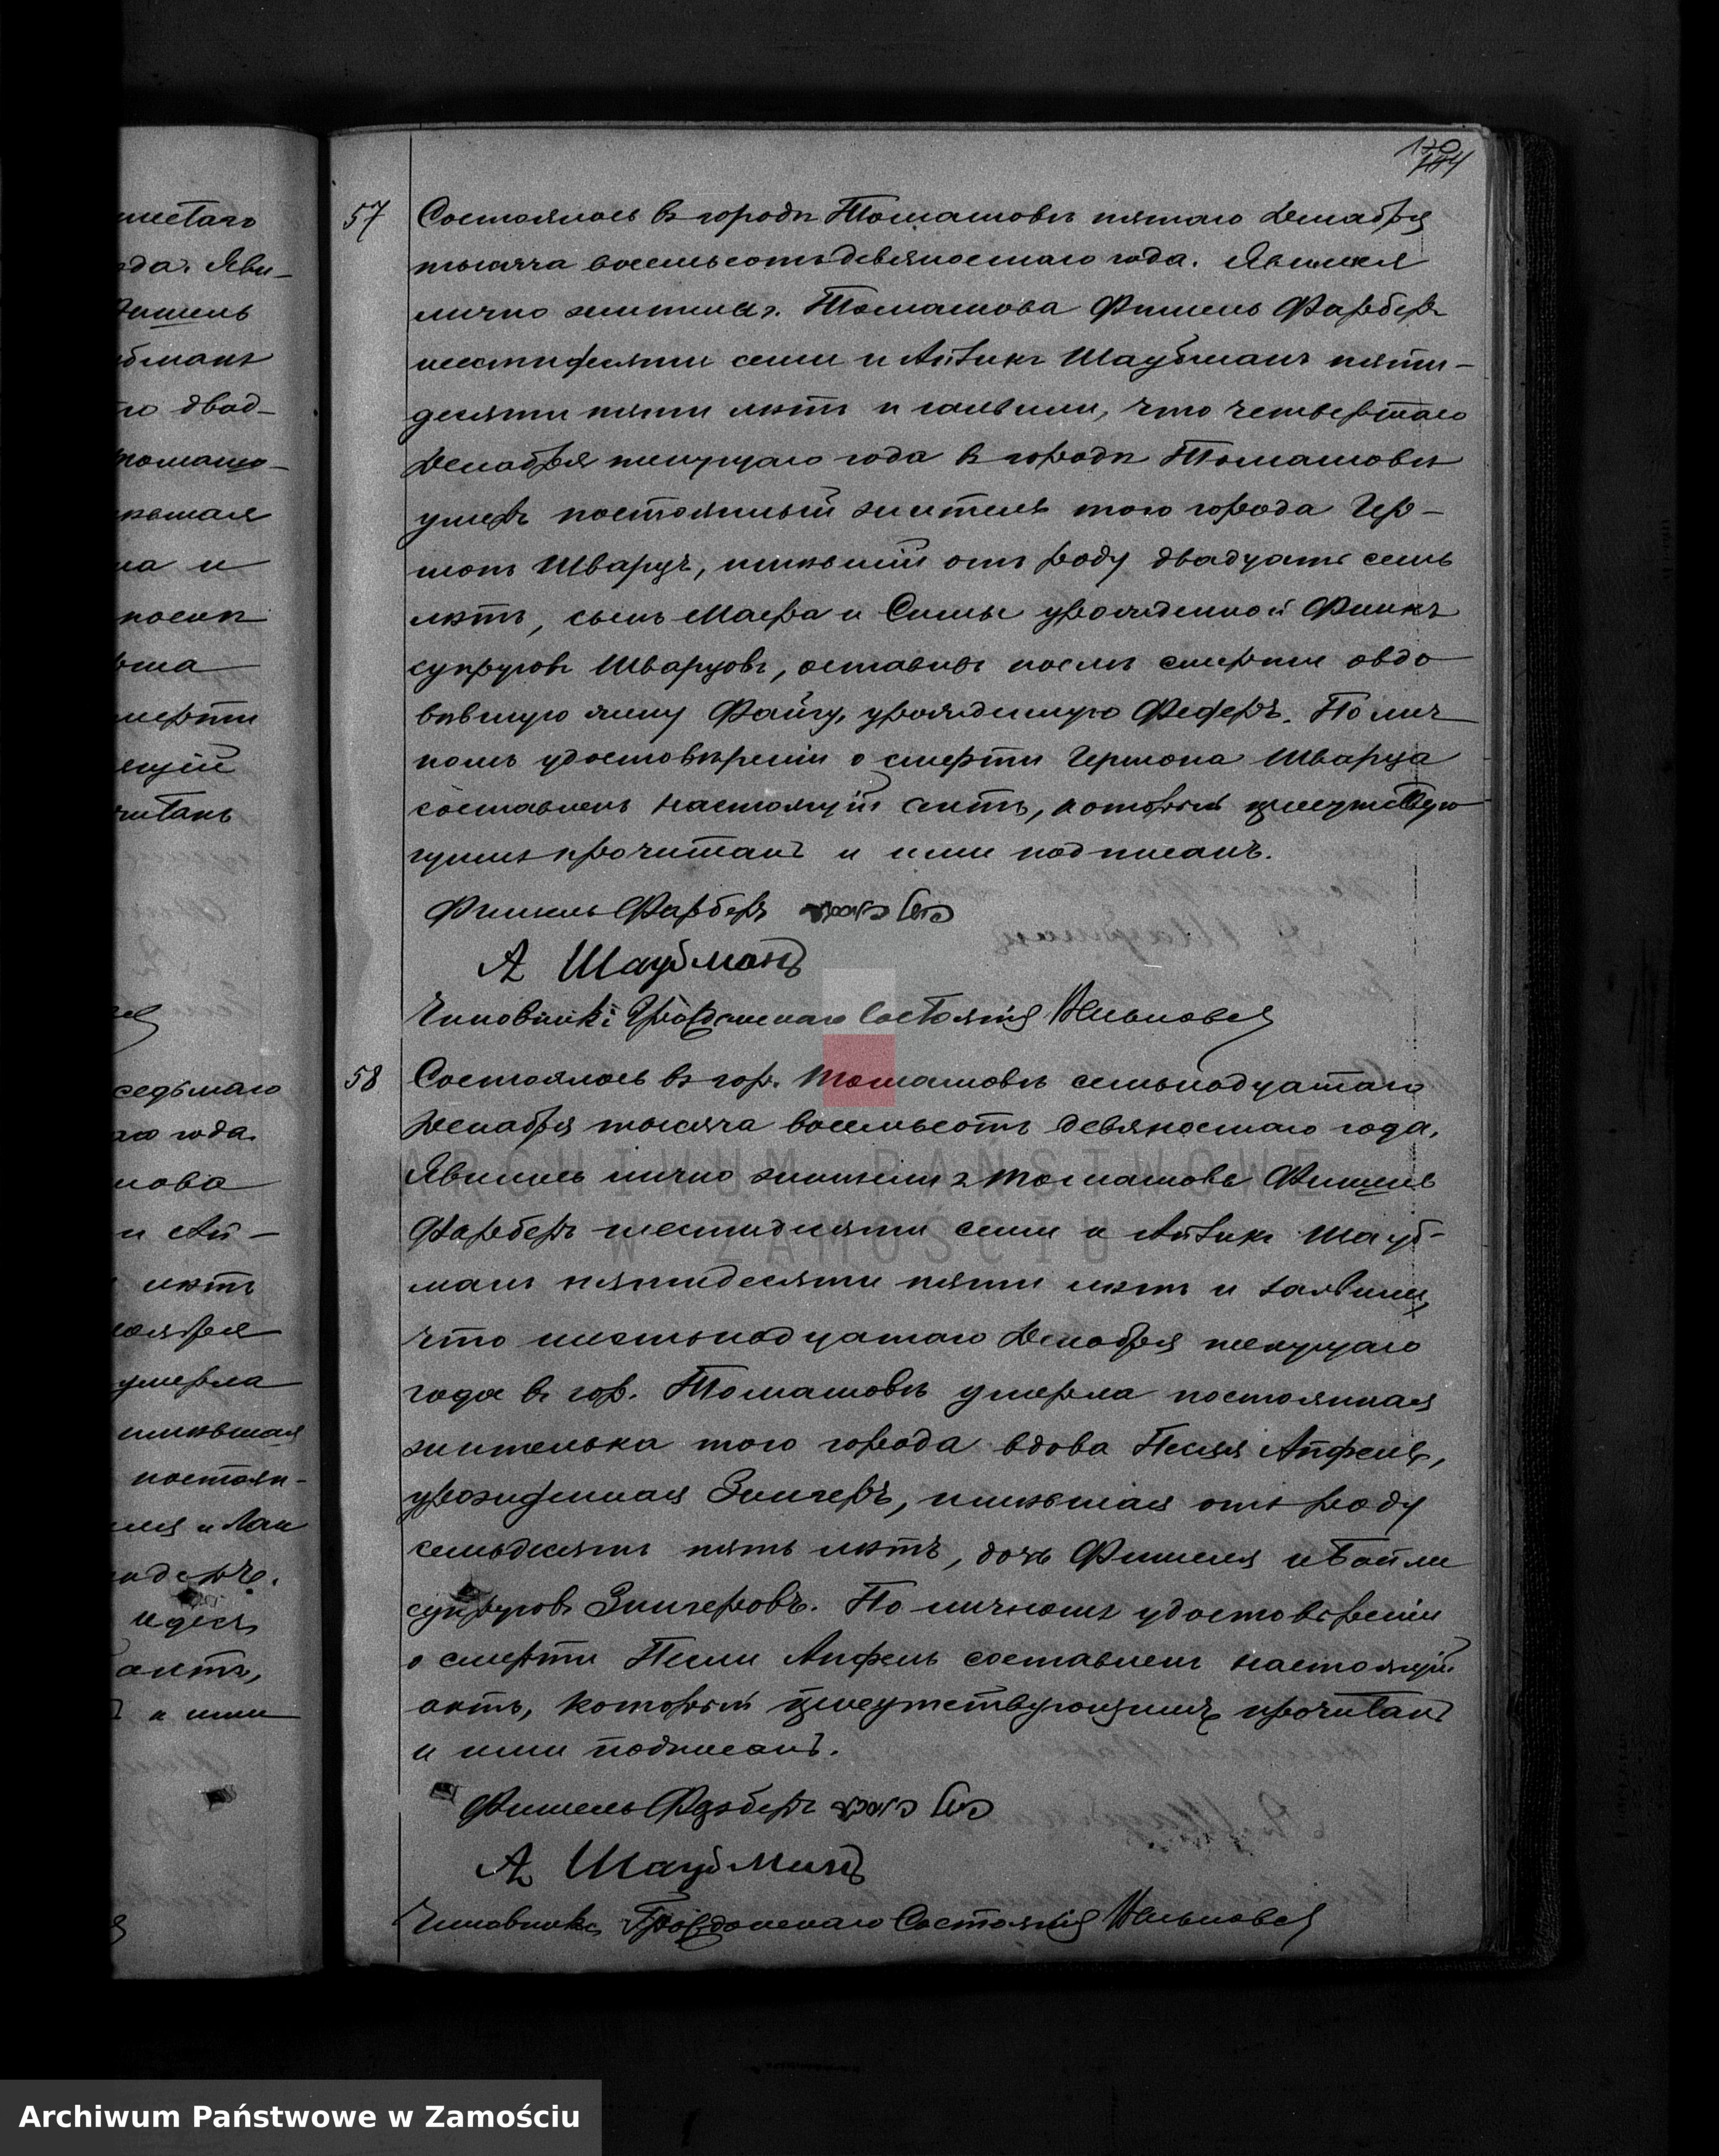 57 Состоялось въ городѣ Томашовѣ пятаго Декабря
тысяча восемьсотъ девяностаго года. Явился
лично жители г. Томашова Фишель Фарберъ
шестидесяти семи и Айзикъ Шаубманъ пяти-
десяти пяти лѣтъ и заявили, что четвертаго
Декабря текущаго года въ городѣ Томашовѣ
умеръ постоянный житель того города Гер-
шонъ Шварцъ, имѣвшій отъ роду двадцать семь
лѣтъ, сынъ Маера и Симы урожденной Финкъ
супруговъ Шварцовъ, оставивъ послѣ смерти овдо
вѣвшую жену Файгу, урожденную Федеръ. По лич
номъ удостовѣреніи о смерти Гершона Шварца
составленъ настоящій актъ, который присутствую
щимъ прочитанъ и ими подписанъ.
Фишель Фарберъ
А Шаубманъ
Чиновникъ Гражданскаго Состоянія
58 Состоялось въ гор. Томашовѣ семьнадцатаго
Декабря тысяча восемьсотъ девяностаго года.
Явились лично жители г Томашова Фишель
Фарберъ шестидесяти семи и Айзикъ Шауб-
манъ пятидесяти пяти лѣтъ и заявили,
что шестьнадцатаго Декабря текущаго
года въ гор. Томашовѣ умерла постоянная
жителька того города вдова Песля Апфель,
урожденная Зингеръ, имѣвшая отъ роду
семьдесятъ пять лѣтъ, дочь Фишеля и Бейли
супруговъ Зингеровъ. По личномъ удостовѣреніи
о смерти Песли Апфель составленъ настоящій
актъ, который присутствующимъ прочитанъ
и ими подписанъ.
Фишель Фарберъ
А Шаубманъ
Чиновникъ Гражданскаго Состоянія
ARCHIWUM PAŃSTWOWE
W ZAMOŚCIU
Archiwum Państwowe w Zamościu